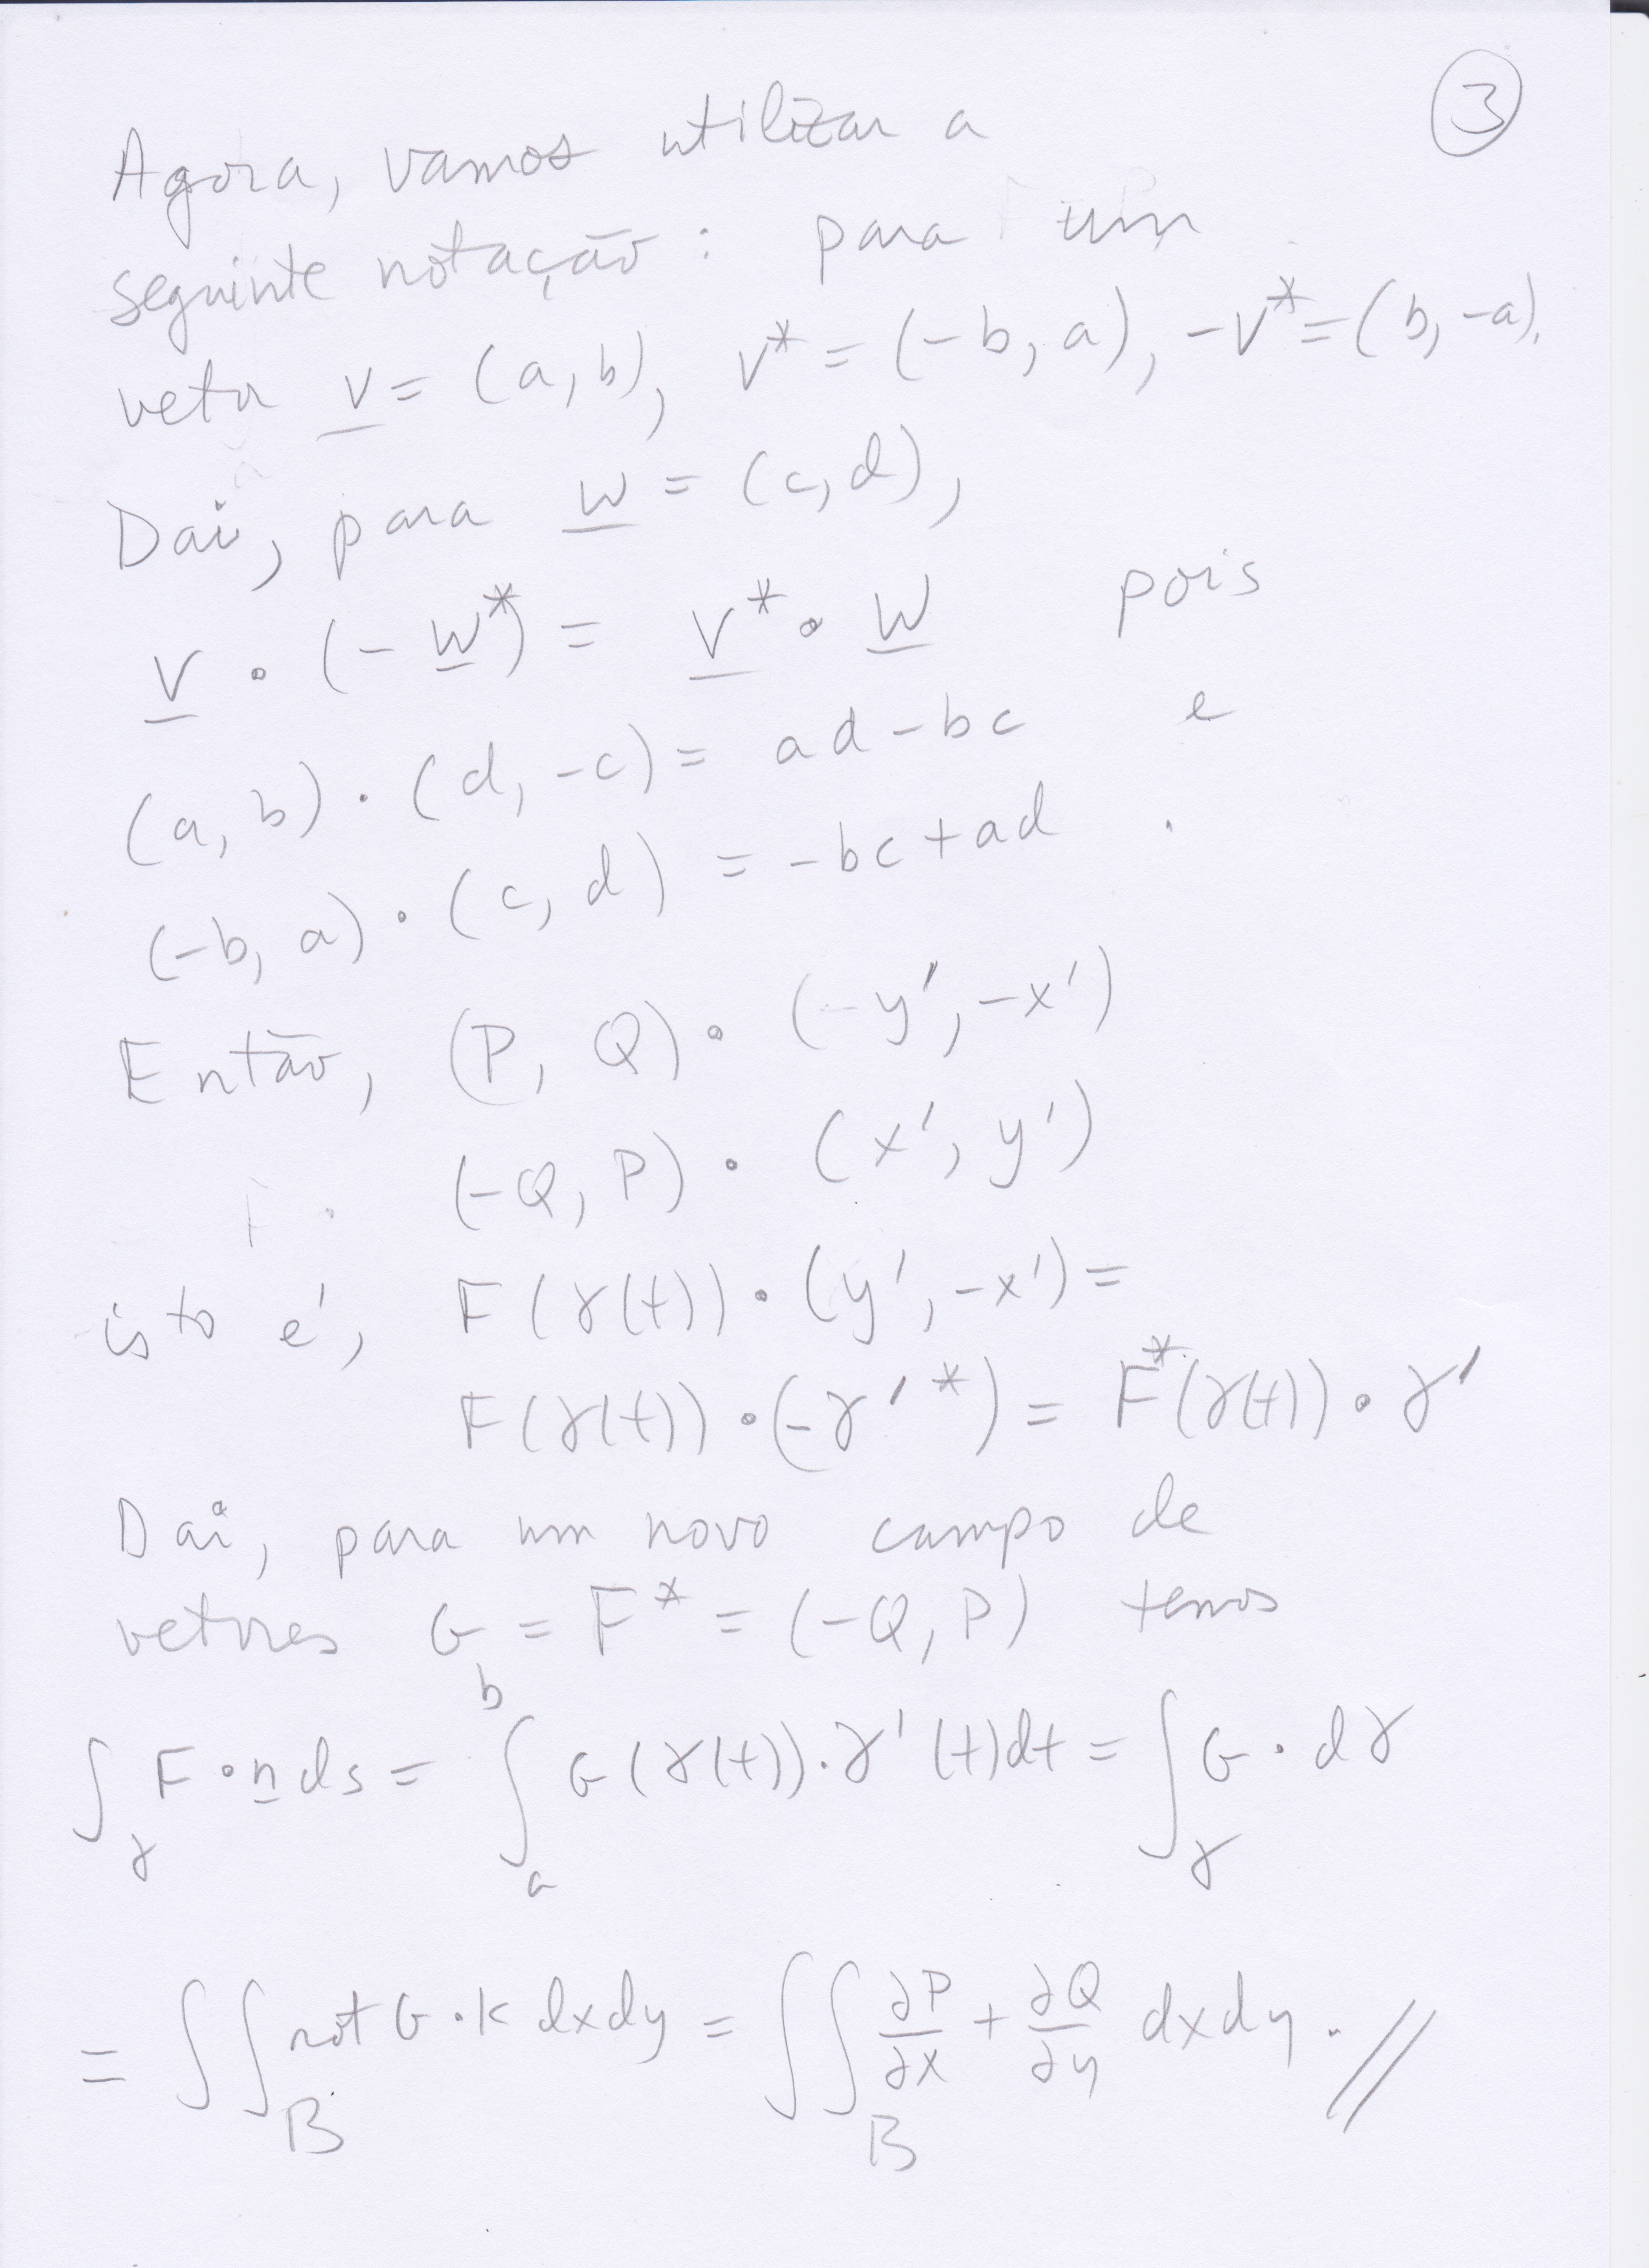 ③
Agora, vamos utilizar a
seguinte notação: para um
vetor v = (a, b), v* = (-b, a), -v* = (b, -a).
Daí, para w = (c, d),
v · (-w*) = v* · w pois
(a, b) · (d, -c) = ad - bc e
(-b, a) · (c, d) = -bc + ad .
Então, (P, Q) · (-y', -x')
(-Q, P) · (x', y')
isto é, F(γ(t)) · (y', -x') =
F(γ(t)) · (-γ'*) = F*(γ(t)) · γ'
Daí, para um novo campo de
vetores G = F* = (-Q, P) temos
∫_γ F · n ds = ∫_a^b G(γ(t)) · γ'(t) dt = ∫_γ G · dγ
= ∫∫_B rot G · k dxdy = ∫∫_B ∂P/∂x + ∂Q/∂y dxdy. //